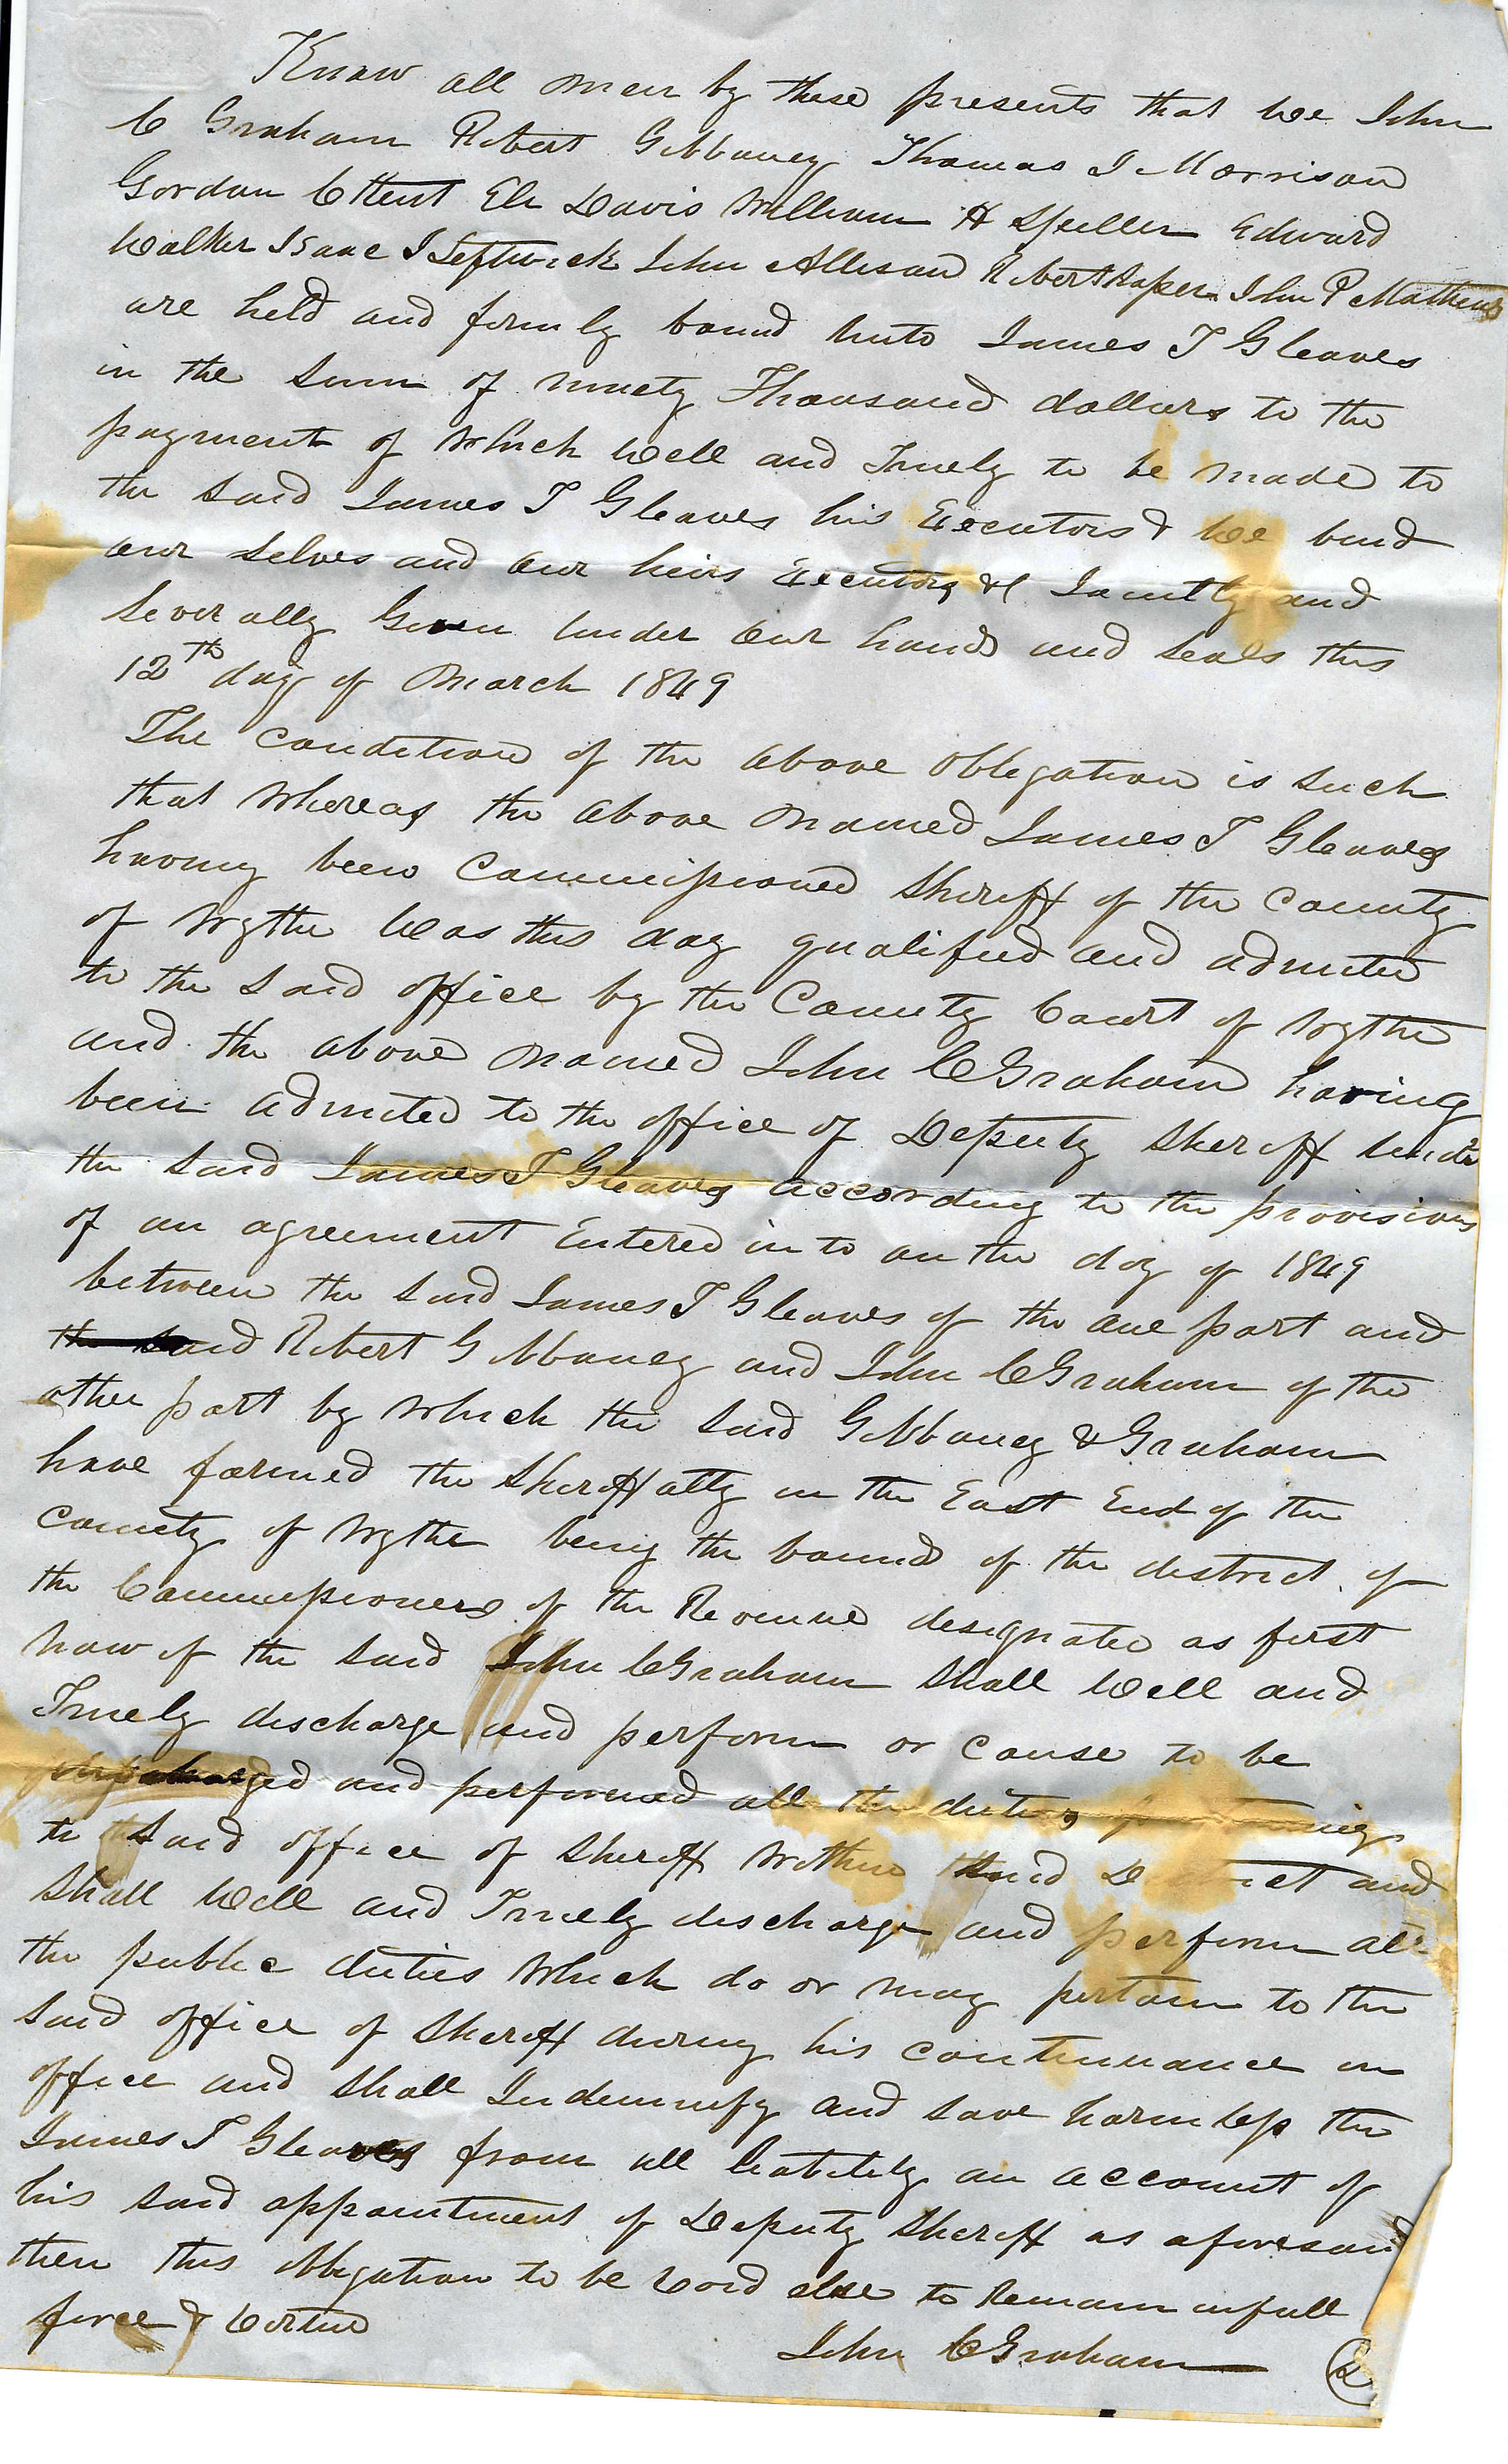 Know all men by these presents that we John
C Graham Robert Gibboney Thomas J Morrison
Gordon C Kent Eli Davis William H Spiller Edward
Walker Isaac J Leftwich John Allison Robert Raper John P Mathews
are held and firmly bound unto James T Gleaves
in the sum of ninety Thousand dollars to the
payment of which well and Truely to be made to
the said James T Gleaves his Executors & we bind
our selves and our heirs Executors &c Jointly and
Severally Given under our hands and seals this
12th day of March 1849
The condition of the above obligation is such
that whereas the above named James T Gleaves
having been Commissioned Sheriff of the County
of Wythe was this day qualified and admited
to the said office by the County Court of Wythe
and the above named John C Graham having
been admited to the office of Deputy Sheriff under
the said James T Gleaves according to the provisions
of an agreement Entered in to on the day of 1849
between the said James T Gleaves of the one part and
the said Robert Gibboney and John C Graham of the
other part by which the said Gibboney & Graham
have farmed the Sheriffalty in the East End of the
County of Wythe being the bounds of the district of
the Commissioners of the Revenue designated as first
now if the said John C Graham shall well and
Truely discharge and perform or cause to be
and performed all the duties
to said office of Sheriff within said District and
shall well and Truely discharge and perform all
the public duties which do or may pertain to the
said office of Sheriff during his continuance in
office and shall Indemnify and save harmless the
James T Gleaves from all liability on account of
his said appointment of Deputy Sheriff as aforesaid
then this obligation to be void else to Remain in full
force & virtue
John C Graham